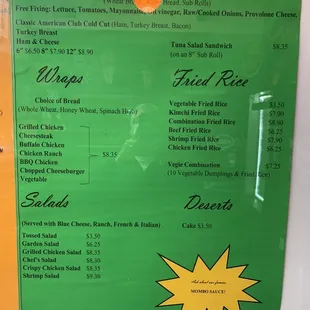 (Wheat Bread, Sub Rolls)
Free Fixing: Lettuce, Tomatoes, Mayonnaise, Oil, vinegar, Raw/Cooked Onions, Provolone Cheese,
Classic American Club Cold Cut (Ham, Turkey Breast, Bacon)
Turkey Breast
Ham & Cheese
6" $6.50 8" $7.90 12" $8.90
Tuna Salad Sandwich $8.35
(on an 8" Sub Roll)
Wraps
Choice of Bread
(Whole Wheat, Honey Wheat, Spinach
Grilled Chicken
Cheesesteak
Buffalo Chicken
Chicken Ranch
BBQ Chicken
Chopped Cheeseburger
Vegetable
$8.35
Fried Rice
Vegetable Fried Rice $3.50
Kimchi Fried Rice $7.90
Combination Fried Rice $8.90
Beef Fried Rice $6.25
Shrimp Fried Rice $7.90
Chicken Fried Rice $6.25
Vegie Combination $7.25
(10 Vegetable Dumplings & Fried Rice)
Salads
(Served with Blue Cheese, Ranch, French & Italian)
Tossed Salad $3.50
Garden Salad $6.25
Grilled Chicken Salad $8.35
Chef's Salad $8.30
Crispy Chicken Salad $8.35
Shrimp Salad $9.30
Deserts
Cake $3.50
Ask about our famous
MOMBO SAUCE!